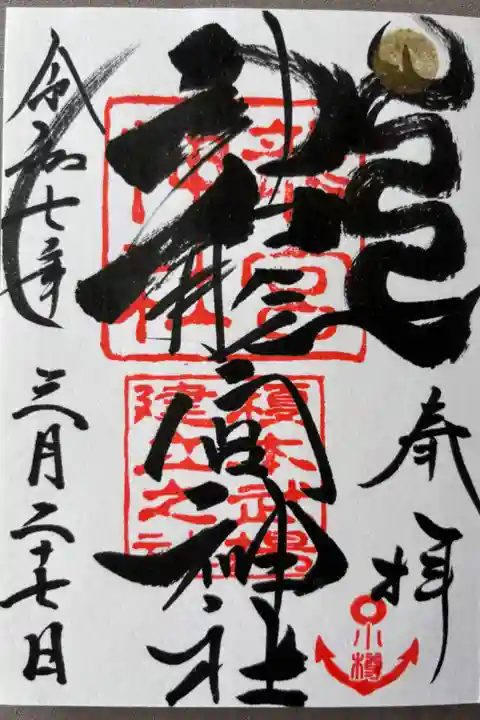 奉拝
小樽
龍宮神社
龍宮神社
榎本武揚
建立之社
令和七年
三月二十七日